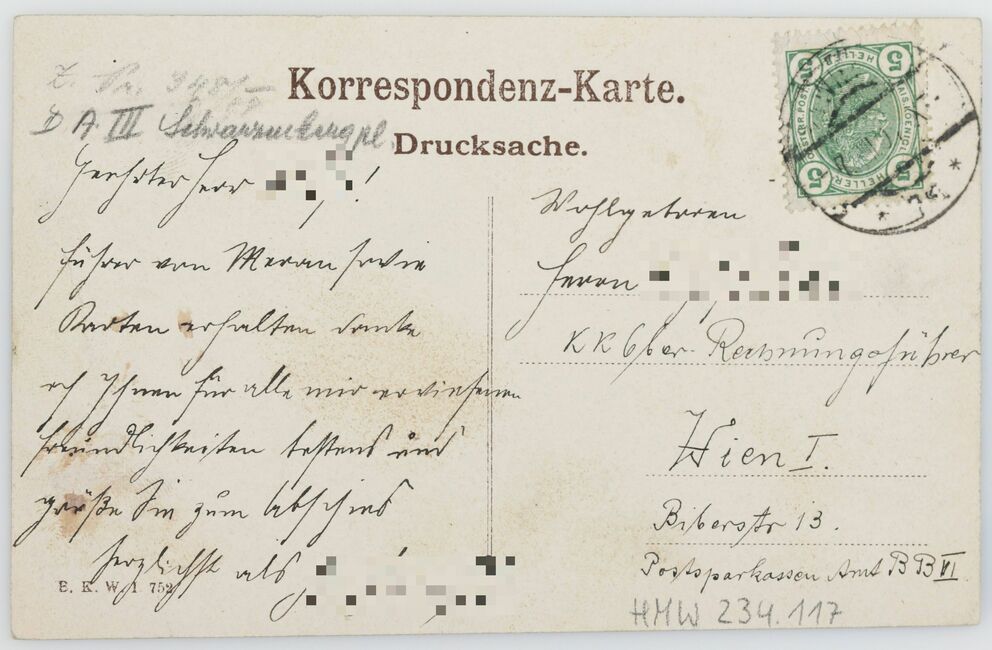 Korrespondenz-Karte.
Drucksache.
D A III Schwarzenbergpl
Geehrter Herr !
führer von Meran sowie
Karten erhalten danke
ich Ihnen für alle mir erwiesenen
freundlichkeiten bestens und
grüße Sie zum Abschied
herzlichst als
B. K. W. I. 752
Wohlgeboren
Herrn
KK Ober Rechnungsführer
Wien I.
Biberstr 13.
Postsparkassen Amt BB VI
HMW 234.117
5 5
HELLER
HELLER
5 5